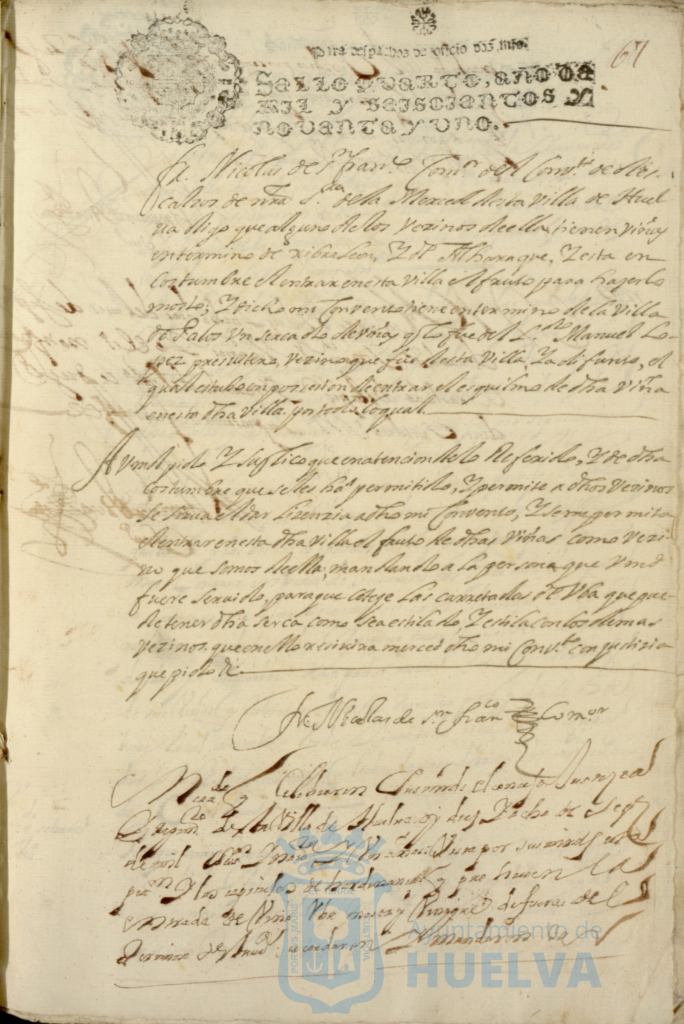 Para despachos de oficio dos mrs.
67
SELLO QVARTO, AÑO DE
MIL Y SEISCIENTOS Y
NOVENTA Y VNO.
Fr. Nicolas de Sn. Franco. Comor. del Convto. de des-
calsos de ntra. Sra. de la Merced desta Villa de Huel
va digo que alguno de los Vezinos de ella tienen viñas
en termino de xibraleon, Y de Alxaraque, Y esta en
Costumbre el entrar en esta Villa el fruto para hazerlo
mosto; Y dicho mi Convento tiene en termino de la Villa
de Palos Un sercado de viñas q lo fue del Ldo. Manuel Lo-
pez presvitero, vezino que fue desta Villa, Ya difunto, el
qual estubo en possession de entrar el esquilmo de dha Viña
en esta dha Villa por todo lo qual
A Vmd pido Y suplico que en atencion de lo Referido, Y de dha
costumbre que se les ha permitido, Y permite a dhos Vezinos
se sirva el dar Lizenzia a dho mi Convento, Y se me permita
el entrar en esta dha Villa el fruto de dhas Viñas como Vezi
no que somos de ella, mandando a la persona que Vmd
fuere servido, para que coteje Las carretadas de Vba que pue-
de tener dha serca como se a estilado Y estila con los demas
Vezinos que en ello resivira merced dho mi Convto. con justizia
que pido &.
Fr. Nicolas de Sn. Franco. Comor.
Celebraron
Villa de Huelva dies Y ocho de
de mil
pon. Y los capitulos de hordenansas q prohiven la
entrada de Vino Vba de fuera del
termino acordaron Y mandaron
Ayuntamiento de
HUELVA